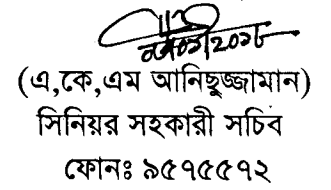 (এ,কে,এম আনিছুজ্জামান)
সিনিয়র সহকারী সচিব
ফোনঃ ৯৫৭৫৫৭২